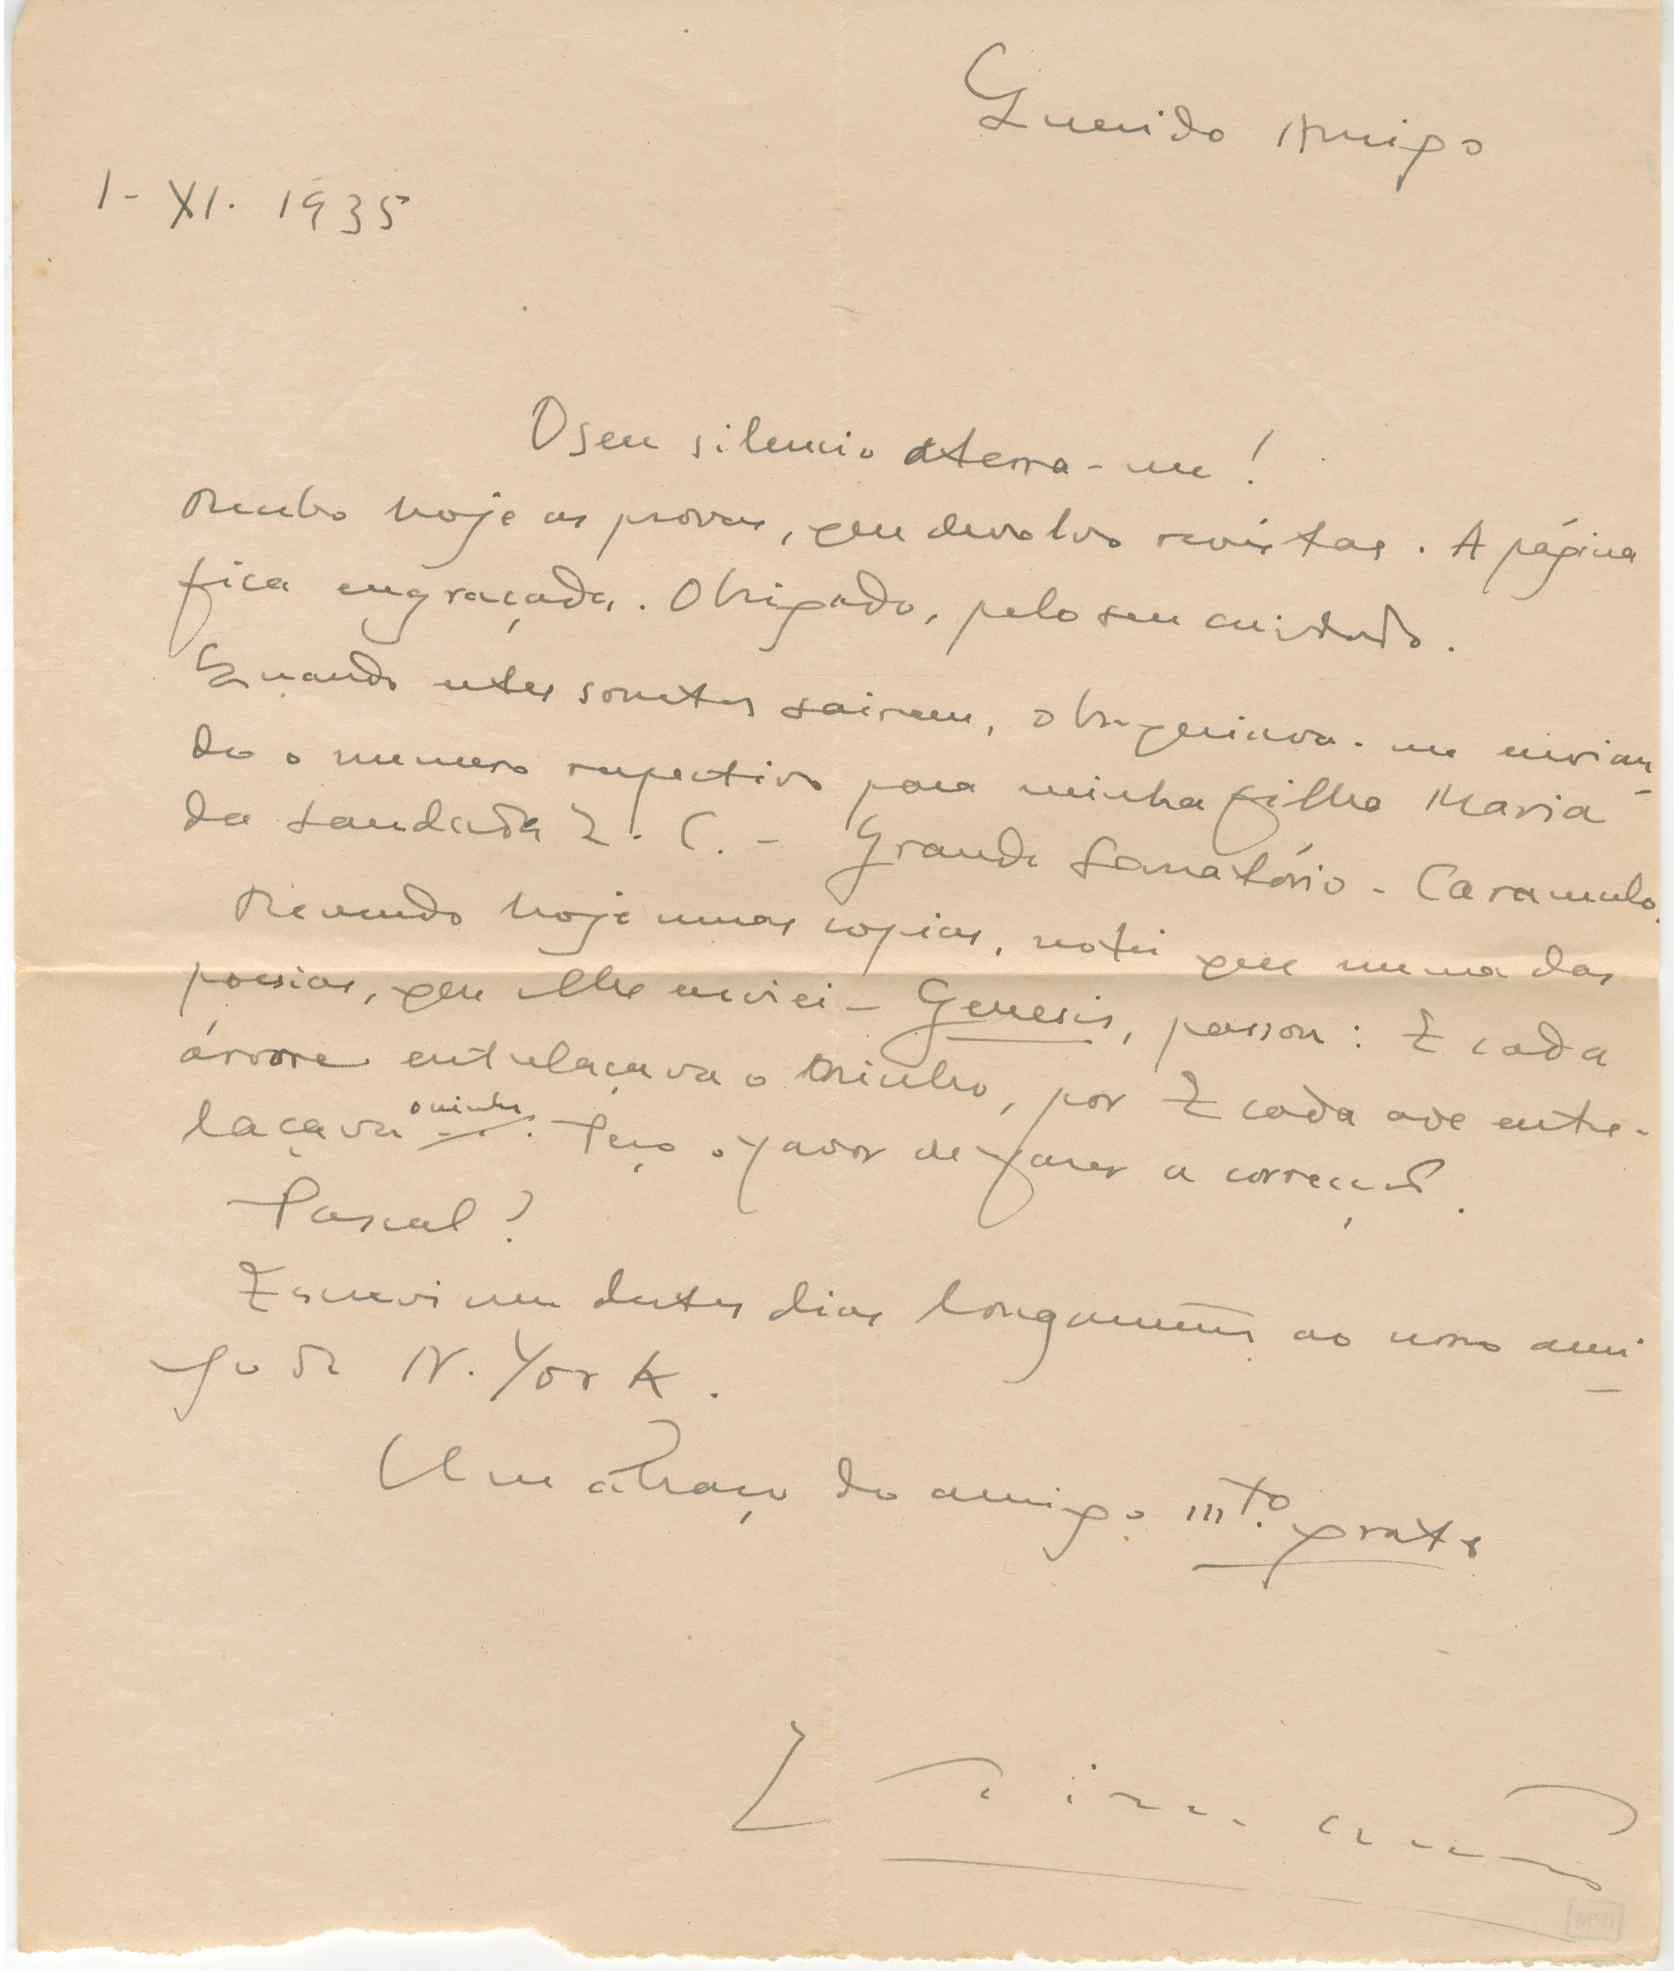 Querido Amigo
1-XI. 1935
O seu silencio aterra-me!
Recebo hoje as provas, que devolvo revistas. A página
fica engraçada. Obrigado, pelo seu cuidado.
Quando estes sonetos sairem, obsequiava-me envian-
do o numero respectivo para minha filha Maria
da Saudade L. C. - Grande Sanatório - Caramulo.
Revendo hoje umas copias, notei que numa das
poesias, que lhe enviei - Genesis, passou: E cada
árvore entrelaçava o ninho, por E cada ave entre-
laçava o ninho. Peço o favor de fazer a correcção.
Pascal?
Escrevi um destes dias longamente ao nosso ami-
go de N. York.
Um abraço do amigo mto. grato